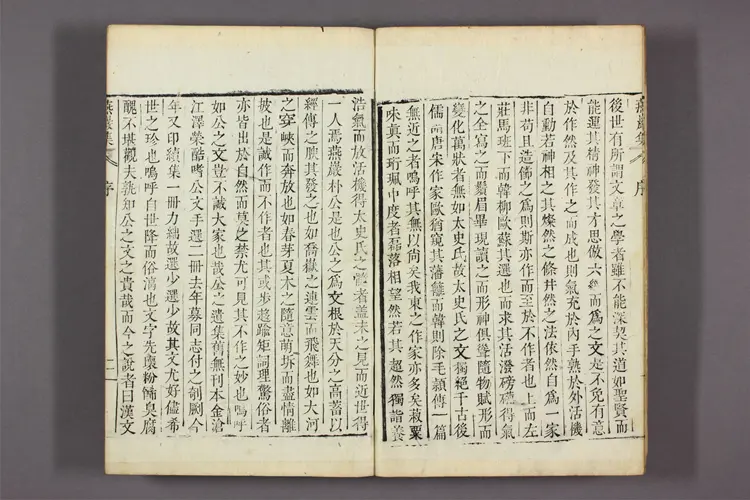 後世有所謂文章之學者雖不能深契其道如聖賢而
能運其精神發其才思倣六經而爲之文是不免有意
於作然及其作之而成也則氣充於內手熟於外活機
自動若神相之其燦然之條井然之法依然自爲一家
非苟且造飾之爲則斯亦作而至於不作者也上而左
莊馬班下而韓柳歐蘇其選也而求其活潑磅礴得氣
之全寫之而鬚眉畢現讀之而形神俱聳隨物賦形而
變化萬狀者無如太史氏故太史氏之文獨絕千古後
儒謂唐宋作家歐猶窺其藩籬而韓則除毛穎傳一篇
無近之者嗚呼其無以尙矣我東之作家亦多矣菽粟
味眞而珩珮中度者磊落相望然若其超然獨詣養
浩氣而放活機得太史氏之髓者蓋未之見而近世得
一人焉燕巖朴公是也公之爲文根於天分之高蓄以
經傳之腴其發之也如喬嶽之連雲而飛舞也如大河
之穿峽而奔放也如春芽夏木之隨意萌坼而盡情離
披也是誠作而不作者也其或步趍踰矩詞理驚俗者
亦皆出於自然而莫之禁尤可見其不作之妙也嗚呼
如公之文豈不誠大家也哉公之遺集舊無刊本金滄
江澤榮酷嗜公文手選二冊去年募同志付之剞劂今
年又印續集一冊力絀故選少選少故其文尤好儘希
世之珍也嗚呼自世降而俗漓也文字先壞粉餙臭腐
醜不堪觀夫孰知公之文之貴哉而今之說者曰漢文
燕巖集 序 二
燕巖集 序